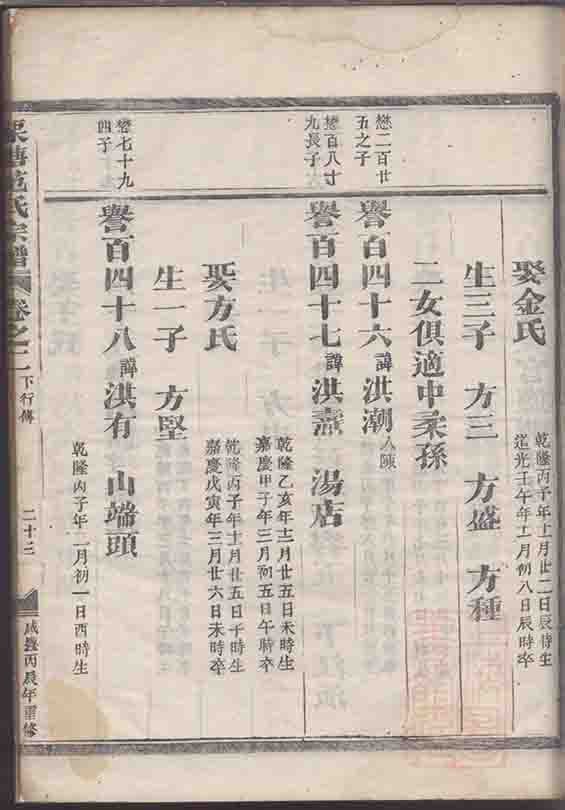 娶金氏
乾隆丙子年十月廿二日辰時生
道光壬午年二月初八日辰時卒
生三子 方三 方盛 方種
二女俱適中柔孫
懋二百廿五之子
譽百四十六諱洪潮入陳
懋百八十九長子
譽百四十七諱洪壼 湯店
乾隆乙亥年十二月廿五日未時生
嘉慶甲子年三月初五日午時卒
娶方氏
乾隆丙子年十月廿五日午時生
嘉慶戊寅年三月廿六日未時卒
生一子 方堅
懋七十九四子
譽百四十八諱洪有 山端頭
乾隆丙子年二月初一日酉時生
范氏宗譜 卷之二 下行傳 二十三 咸豐丙辰年重修